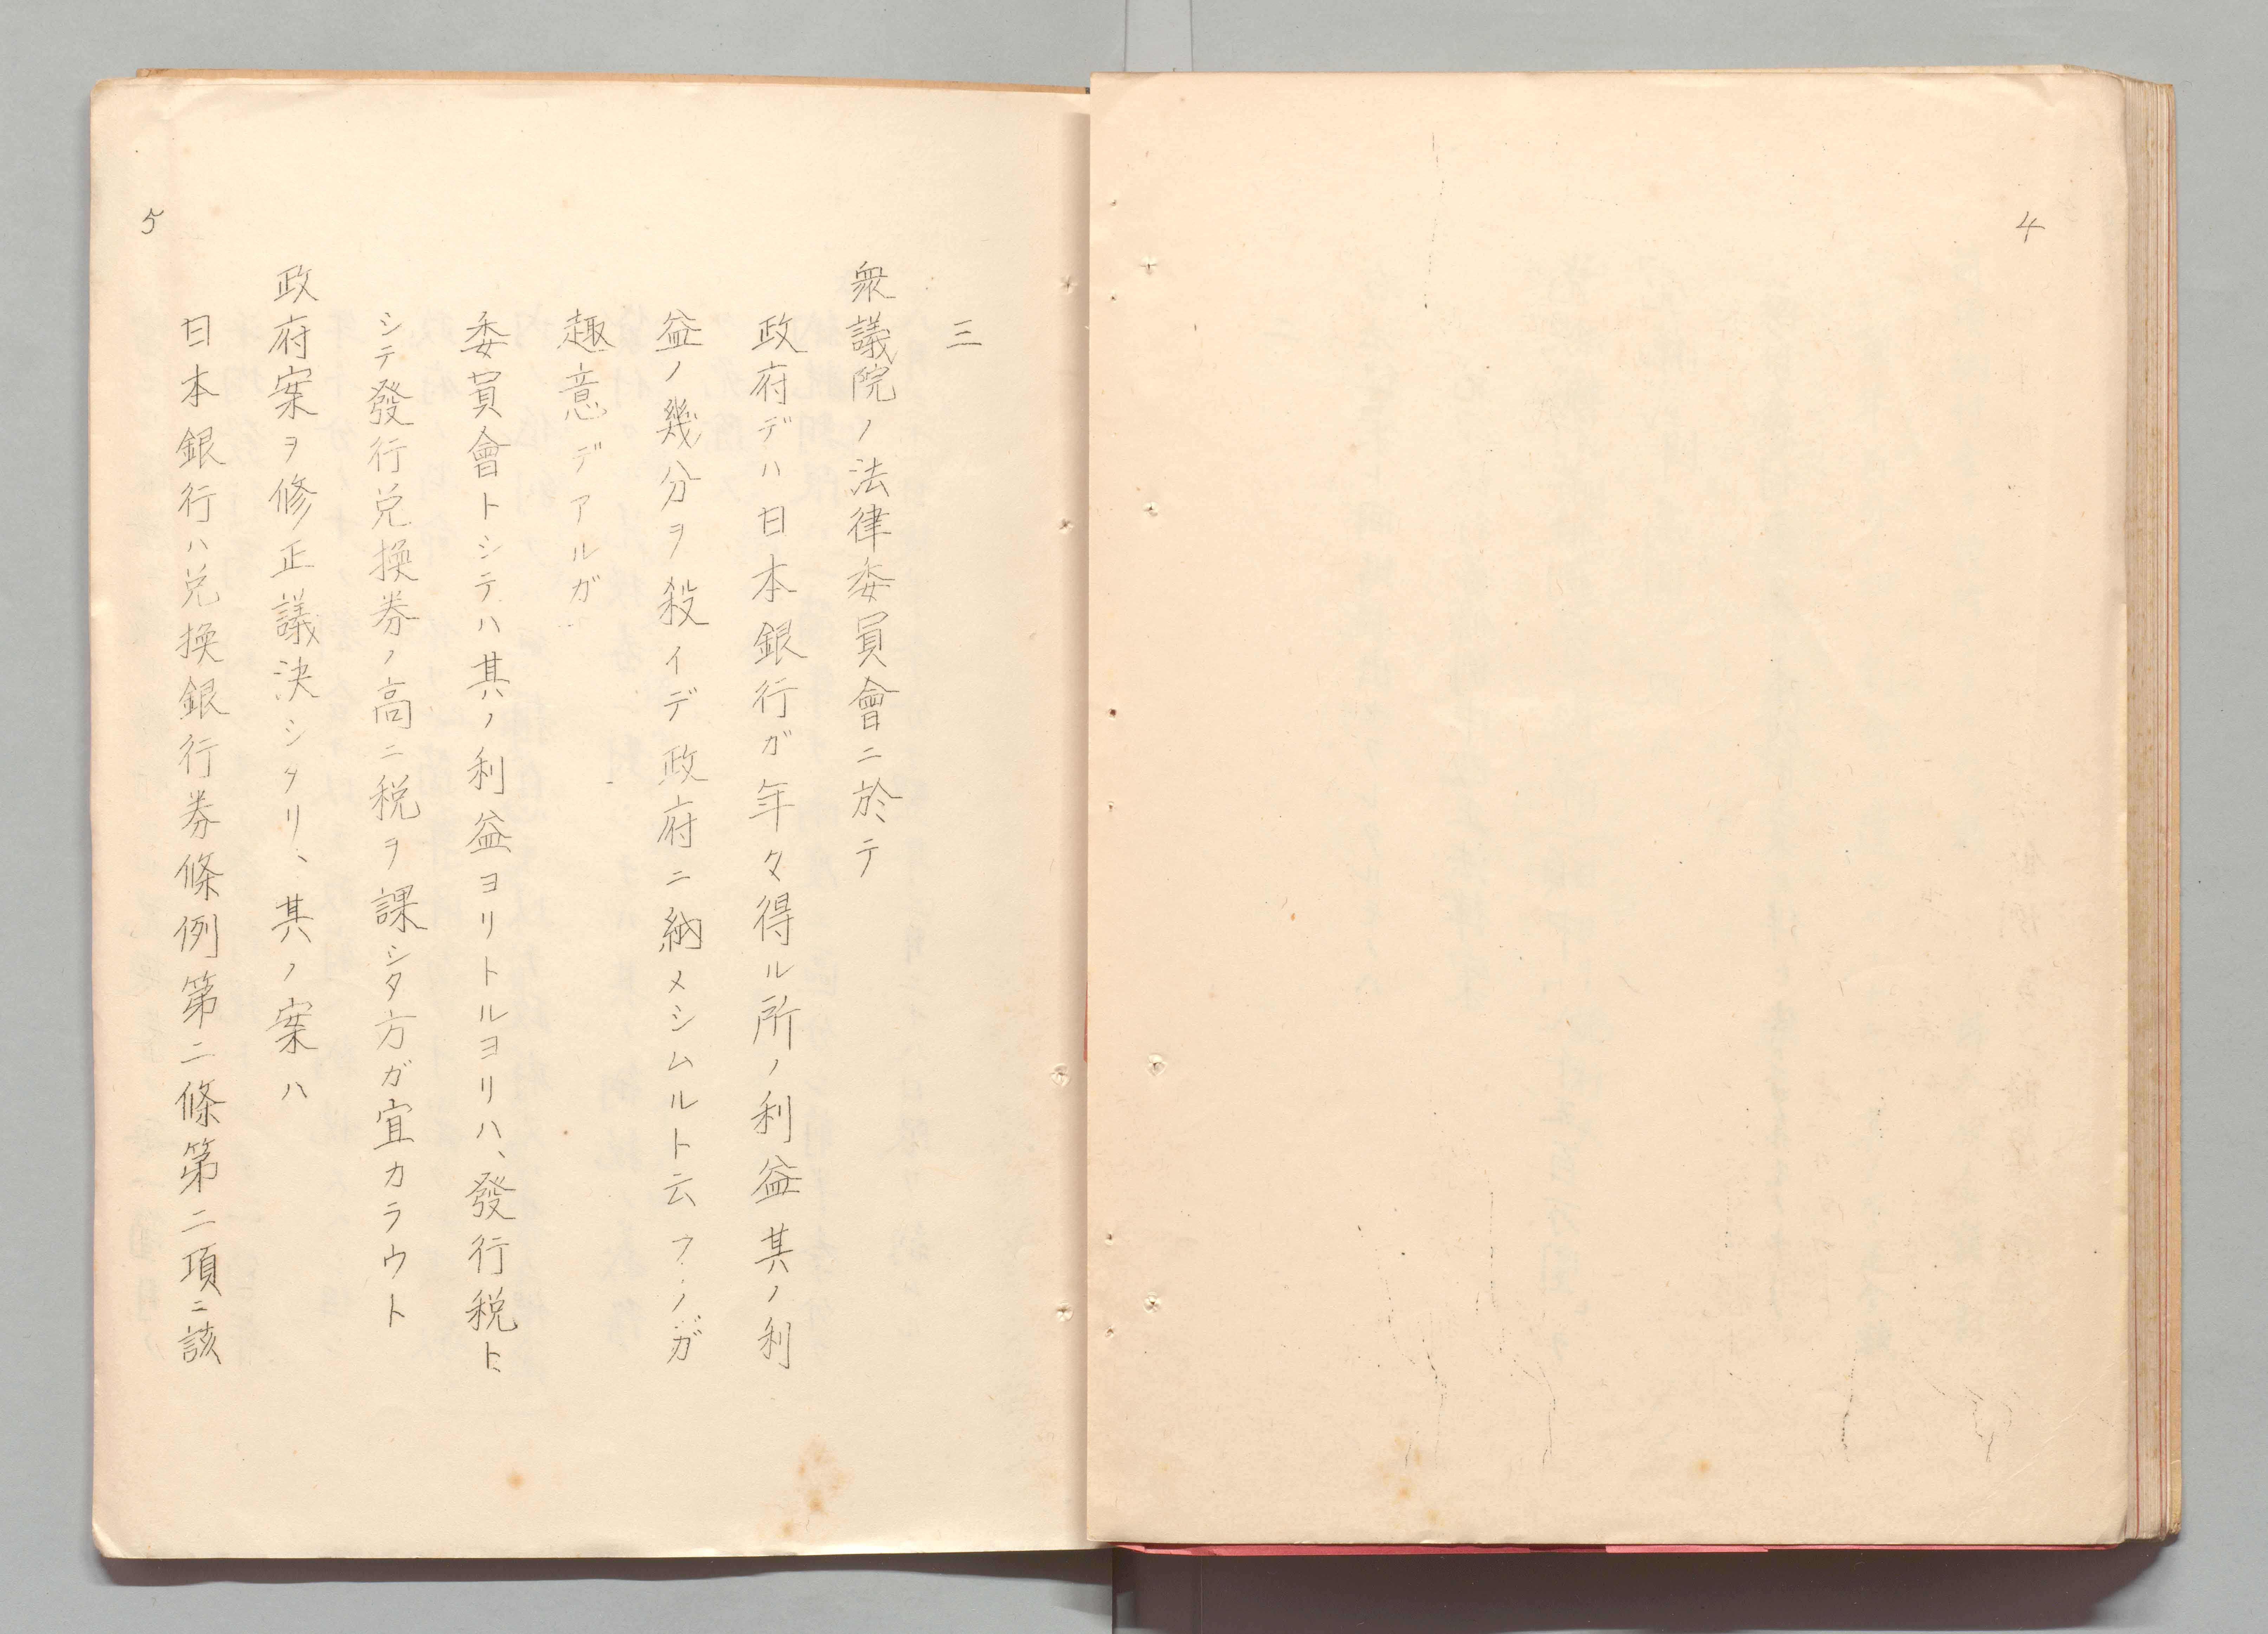 4
三
衆議院ノ法律委員會ニ於テ
政府デハ日本銀行ガ年々得ル所ノ利益其ノ利
益ノ幾分ヲ殺イデ政府ニ納メシムルト云フノガ
趣意デアルガ
委員會トシテハ其ノ利益ヨリトルヨリハ、發行税ト
シテ發行兌換券ノ高ニ税ヲ課シタ方ガ宜カラウト
政府案ヲ修正議決シタリ、其ノ案ハ
日本銀行ハ兌換銀行券條例第二條第二項ニ該
5